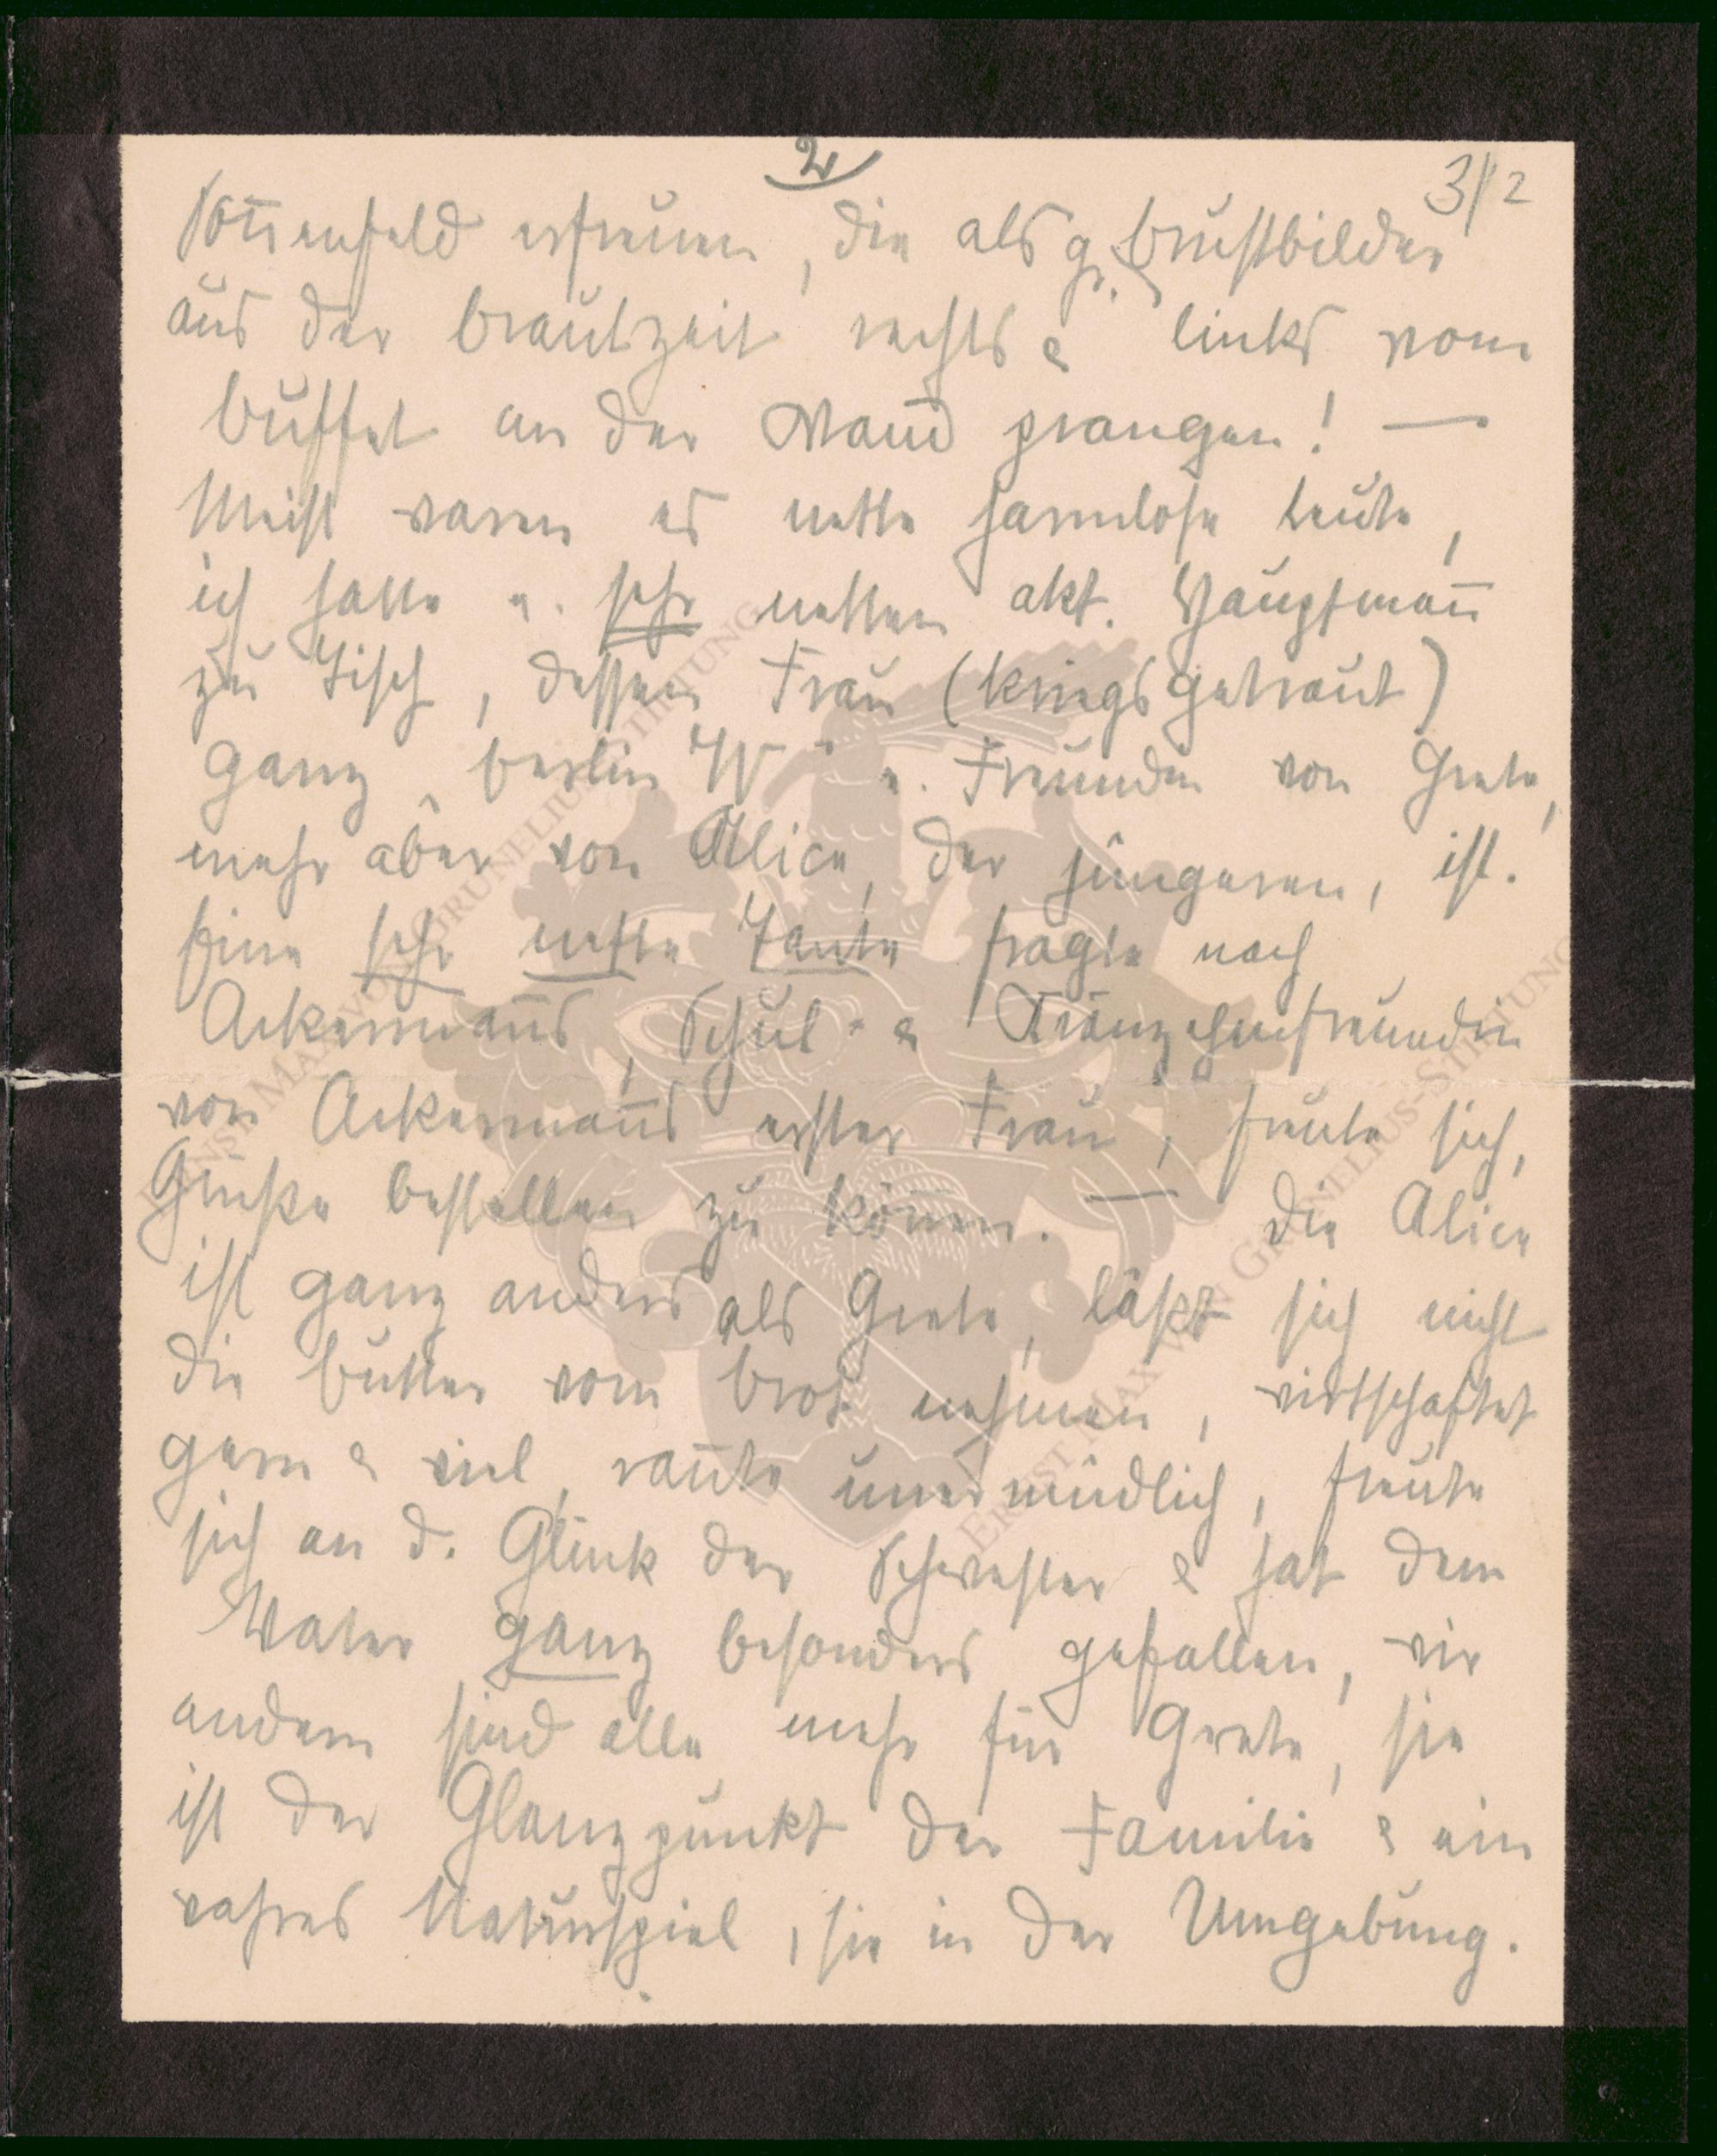 2
3/2
Sonnenfeld erfreuen, die als gr. Brustbilder
aus der Brautzeit rechts & links vom
Buffet an der Wand prangen! —
Meist waren es nette harmlose Leute,
ich hatte e. sehr netten akt. Hauptmann
zu Tisch, dessen Frau (kriegsgetraut)
ganz „Berlin W“ e. Freundin von Grete,
mehr aber von Alice, der jüngeren, ist.
Eine sehr nette Tante fragte nach
Ackermanns, Schul- & Kränzchenfreundin
von Ackermanns erster Frau, freute sich,
Grüße bestellen zu können. — Die Alice
ist ganz anders als Grete, läßt sich nicht
die Butter vom Brot nehmen, wirtschaftet
gern & viel, rannte unermüdlich, freute
sich an d. Glück der Schwester & hat dem
Vater ganz besonders gefallen, wir
andern sind alle mehr für Grete, sie
ist der Glanzpunkt der Familie & ein
wahres Naturspiel, sie in der Umgebung.
ERNST MAX VON GRUNELIUS-STIFTUNG
ERNST MAX VON GRUNELIUS-STIFTUNG